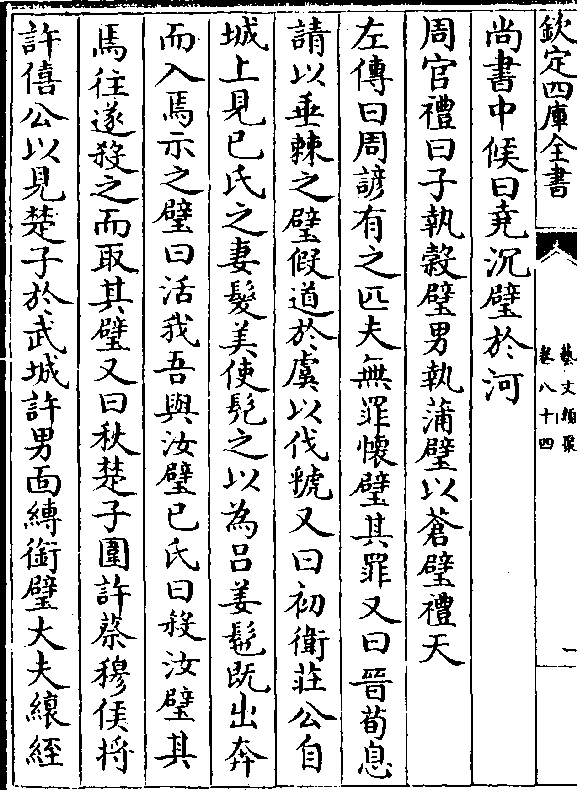 欽定四庫全書
藝文類聚
卷八十四
一
尚書中候曰堯沉璧於河
周官禮曰子執穀璧男執蒲璧以蒼璧禮天
左傳曰周諺有之匹夫無罪懷璧其罪又曰晉荀息
請以垂棘之璧假道於虞以伐虢又曰初衛莊公自
城上見已氏之妻髮美使髡之以為呂姜髢既出奔
而入焉示之璧曰活我吾與汝璧已氏曰殺汝璧其
焉往遂殺之而取其璧又曰秋楚子圍許蔡穆侯將
許僖公以見楚子於武城許男面縛銜璧大夫縗絰